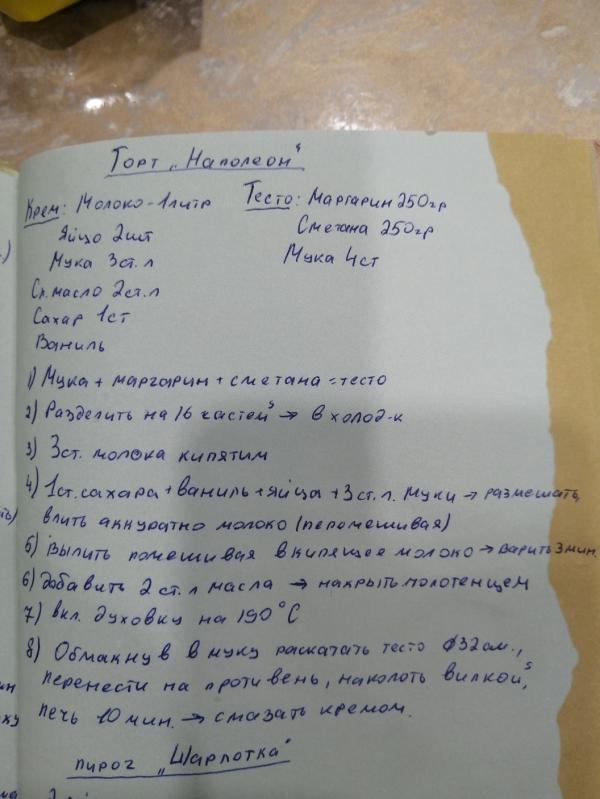 Торт „Наполеон"
Крем: Молоко-1литр Тесто: Маргарин 250гр
Яйцо 2шт Сметана 250гр
Мука 3ст.л Мука 4ст
Сл.масло 2ст.л
Сахар 1ст
Ваниль
1) Мука + маргарин + сметана = тесто
2) Разделить на 16 частей → в холод-к
3) 3ст. молока кипятим
4) 1ст.сахара + ваниль + яйца + 3ст.л. муки → размешать,
влить аккуратно молоко (перемешивая)
5) вылить помешивая в кипящее молоко → варить 3 мин.
6) добавить 2 ст.л масла → накрыть полотенцем
7) вкл. духовку на 190°C
8) Обмакнув в муку раскатать тесто ф32см.,
перенести на противень, наколоть вилкой,
печь 10 мин. → смазать кремом.
пирог „Шарлотка"